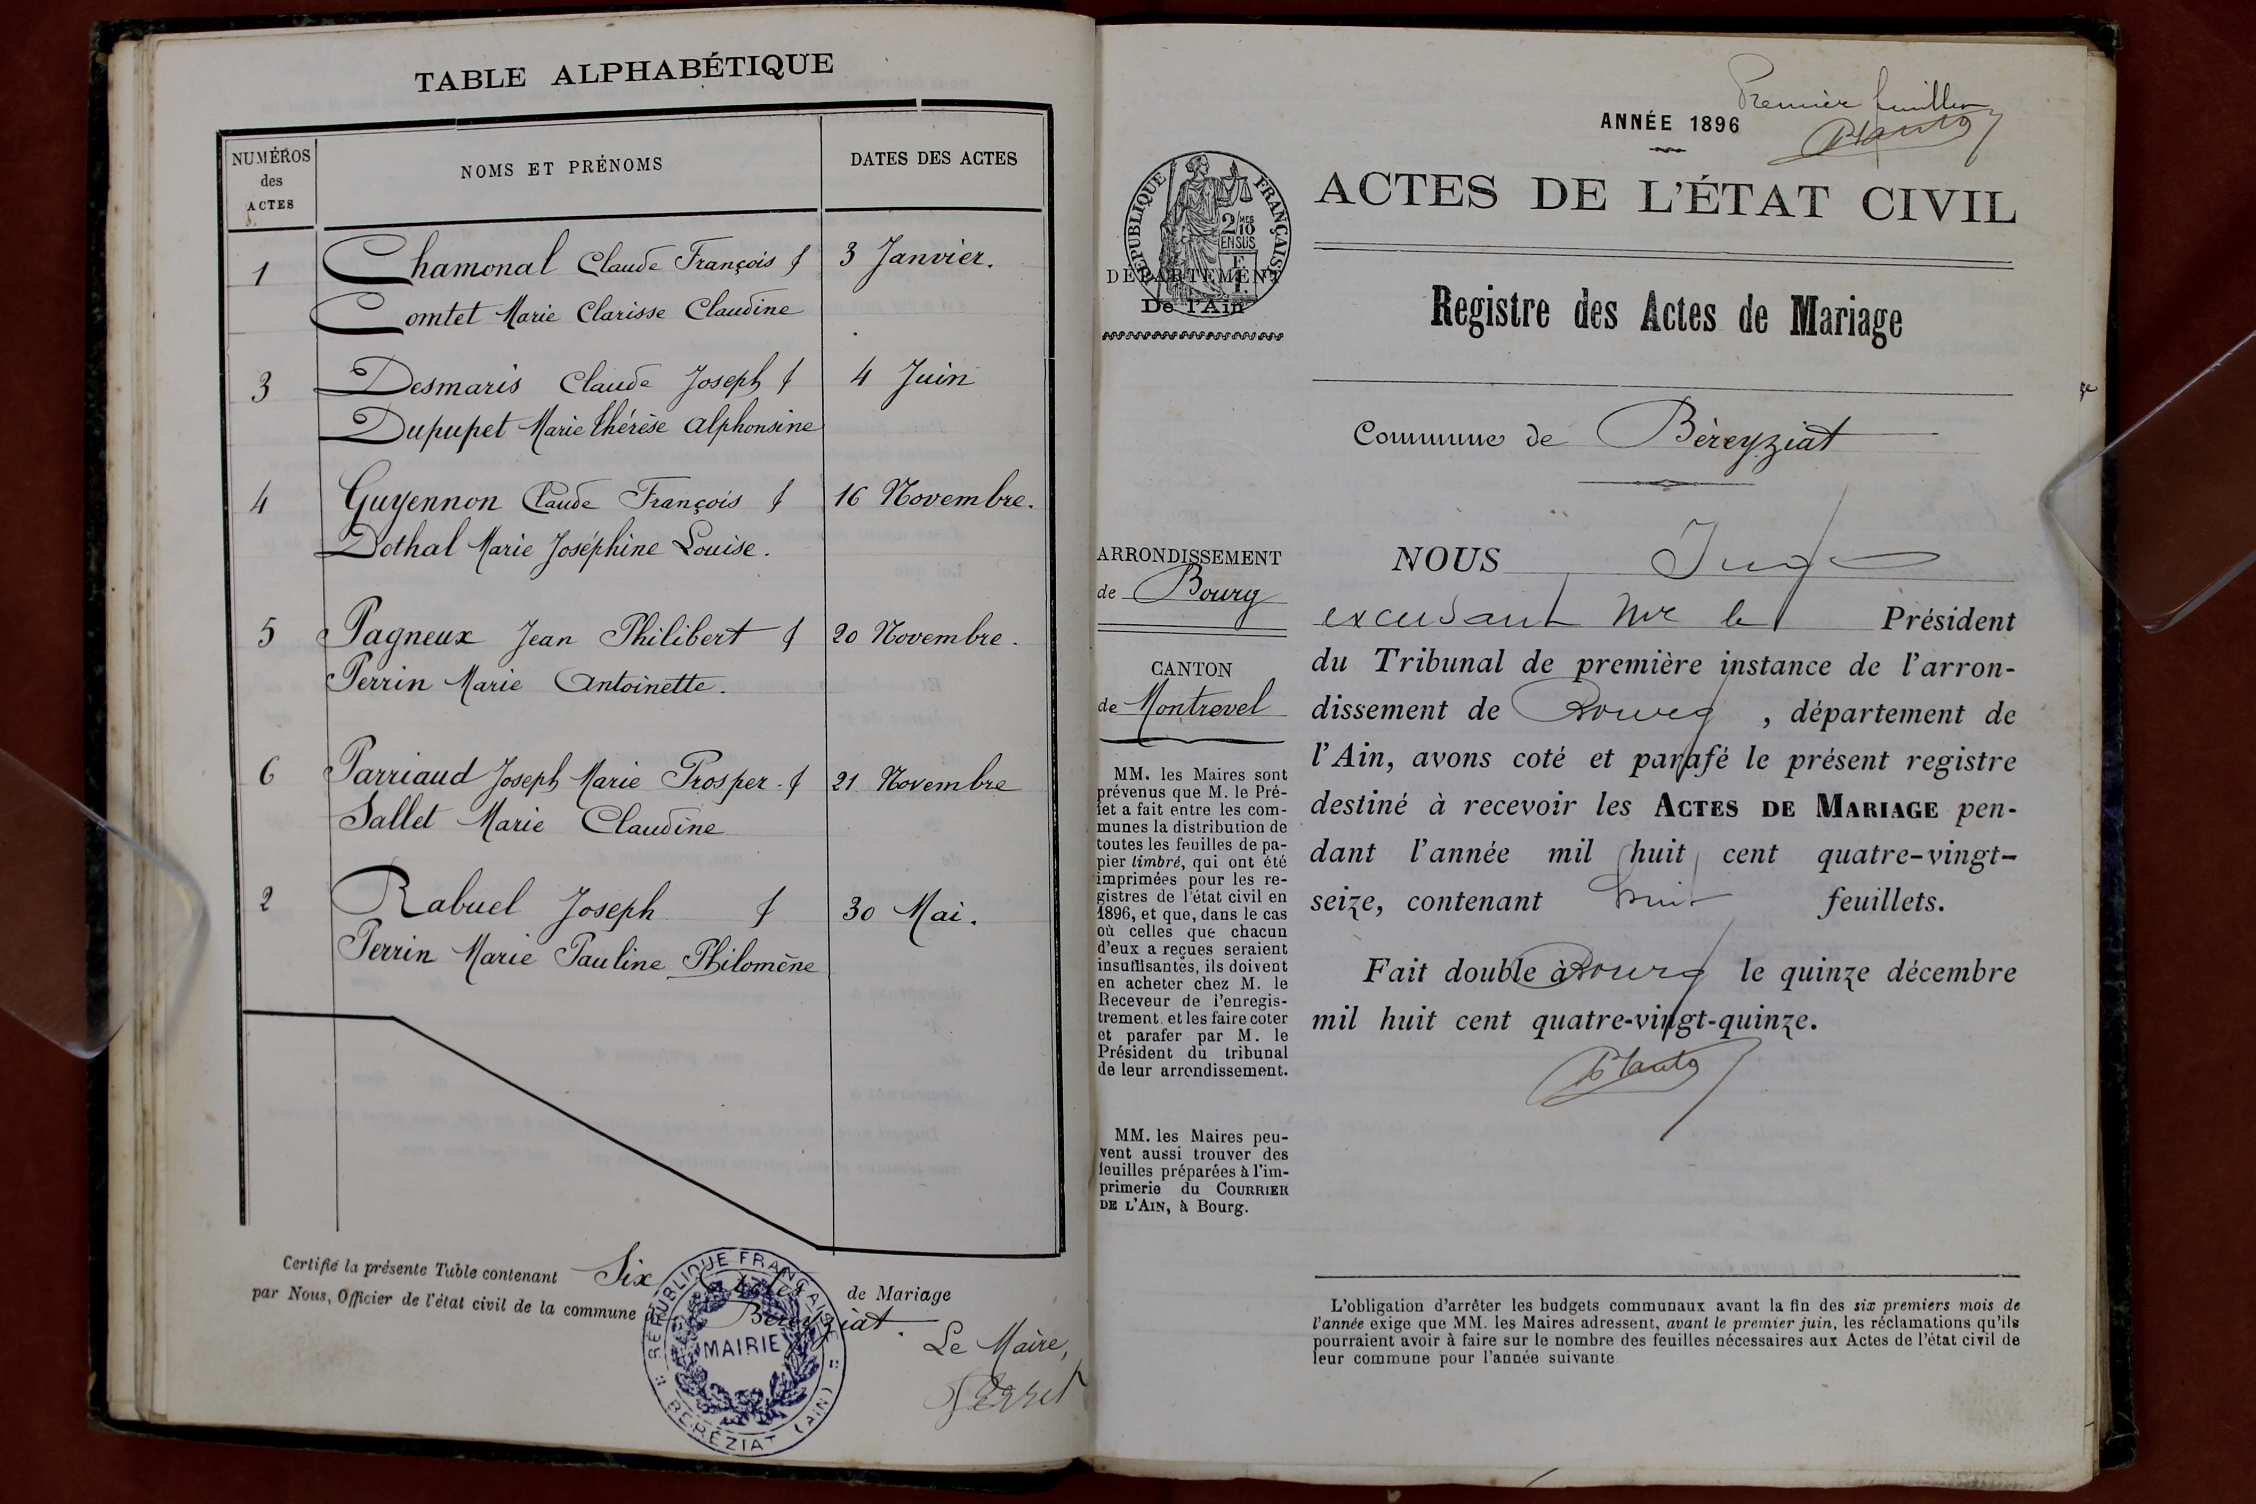 TABLE ALPHABÉTIQUE
NUMÉROS
des
ACTES
NOMS ET PRÉNOMS
DATES DES ACTES
1 Chamonal Claude François & 3 Janvier.
Comtet Marie Clarisse Claudine
3 Desmaris Claude Joseph & 4 Juin
Dupupet Marie Thérèse Alphonsine
4 Guyennon Claude François & 16 Novembre.
Dothal Marie Joséphine Louise.
5 Pagneux Jean Philibert & 20 Novembre.
Perrin Marie Antoinette.
6 Parriaud Joseph Marie Prosper & 21 Novembre
Sallet Marie Claudine
2 Rabuel Joseph & 30 Mai.
Perrin Marie Pauline Philomène
Certifié la présente Table contenant Six Actes de Mariage
par Nous, Officier de l'état civil de la commune de Béreyziat.
Le Maire,
RÉPUBLIQUE FRANÇAISE
MAIRIE
BERÉZIAT (AIN)
Premier feuillet
ANNÉE 1896
RÉPUBLIQUE FRANÇAISE
2/10 MES
EN SUS
DÉPARTEMENT
De l'Ain
ACTES DE L'ÉTAT CIVIL
Registre des Actes de Mariage
Commune de Béreyziat
ARRONDISSEMENT
de Bourg
CANTON
de Montrevel
MM. les Maires sont
prévenus que M. le Pré-
fet a fait entre les com-
munes la distribution de
toutes les feuilles de pa-
pier timbré, qui ont été
imprimées pour les re-
gistres de l'état civil en
1896, et que, dans le cas
où celles que chacun
d'eux a reçues seraient
insuffisantes, ils doivent
en acheter chez M. le
Receveur de l'enregis-
trement et les faire coter
et parafer par M. le
Président du tribunal
de leur arrondissement.
MM. les Maires peu-
vent aussi trouver des
feuilles préparées à l'im-
primerie du COURRIER
DE L'AIN, à Bourg.
NOUS Juge
excusant Mr le Président
du Tribunal de première instance de l'arron-
dissement de Bourg, département de
l'Ain, avons coté et parafé le présent registre
destiné à recevoir les ACTES DE MARIAGE pen-
dant l'année mil huit cent quatre-vingt-
seize, contenant huit feuillets.
Fait double à Bourg le quinze décembre
mil huit cent quatre-vingt-quinze.
L'obligation d'arrêter les budgets communaux avant la fin des six premiers mois de
l'année exige que MM. les Maires adressent, avant le premier juin, les réclamations qu'ils
pourraient avoir à faire sur le nombre des feuilles nécessaires aux Actes de l'état civil de
leur commune pour l'année suivante